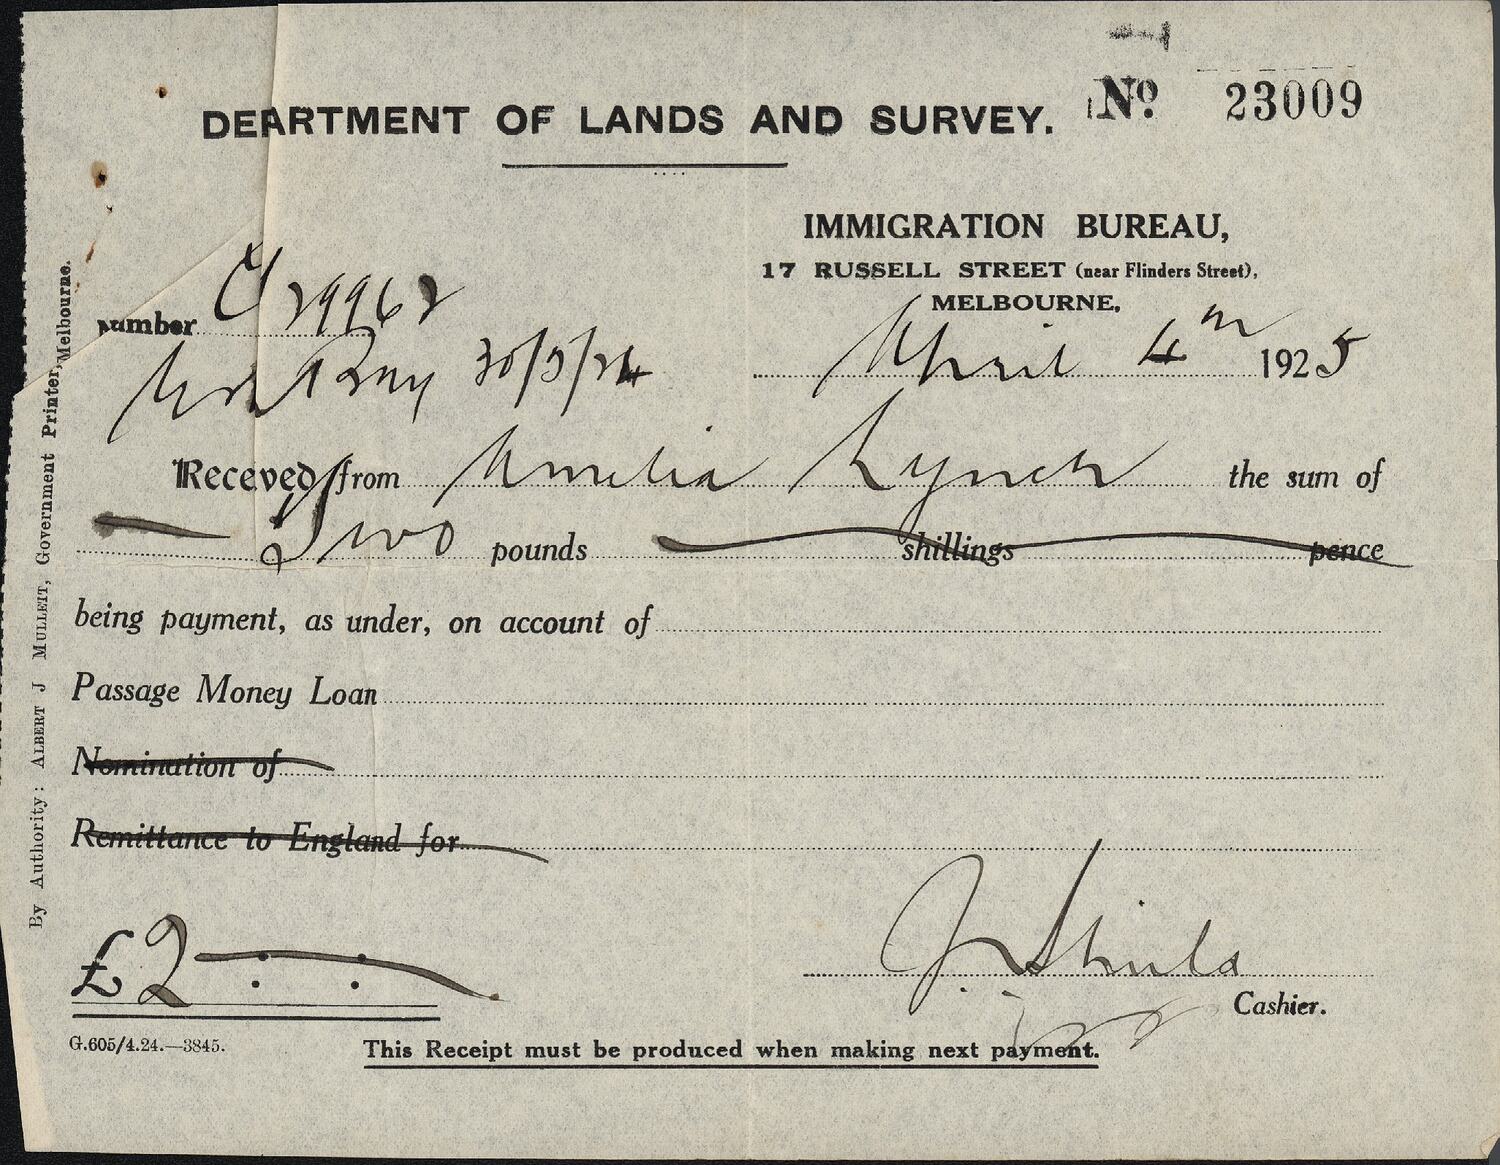 DEARTMENT OF LANDS AND SURVEY.
No. 23009
IMMIGRATION BUREAU,
17 RUSSELL STREET (near Flinders Street),
MELBOURNE,
number C/29962
Bay 30/3/24
April 4th 1925
Receved from Amelia Lynch the sum of
Two pounds shillings pence
being payment, as under, on account of
Passage Money Loan
Nomination of
Remittance to England for
£2 : :
J. Shields
Cashier.
G.605/4.24.—3845.
This Receipt must be produced when making next payment.
By Authority: ALBERT J MULLETT, Government Printer, Melbourne.